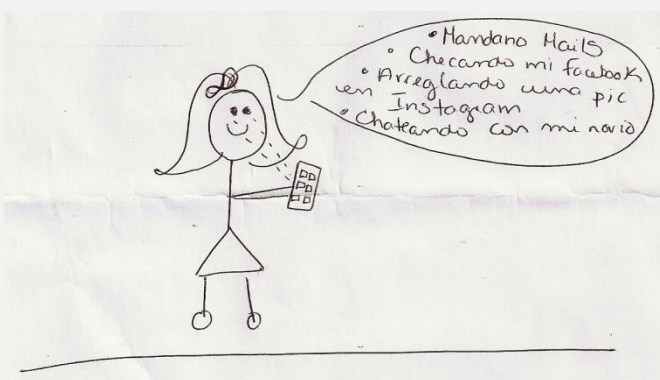 • Mandano Mails
• Checando mi facebook
• Arreglando uma pic
en Instagram
• Chateando con mi novio